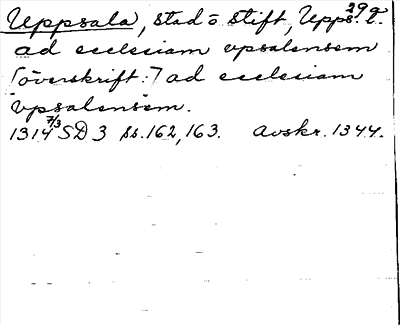 29 q
Uppsala, stad o stift, Upps. l.
ad ecclesiam vpsalensem
[överskrift:] ad ecclesiam
vpsalensem.
1314 7/3 SD 3 ss. 162, 163. Avskr. 1344.